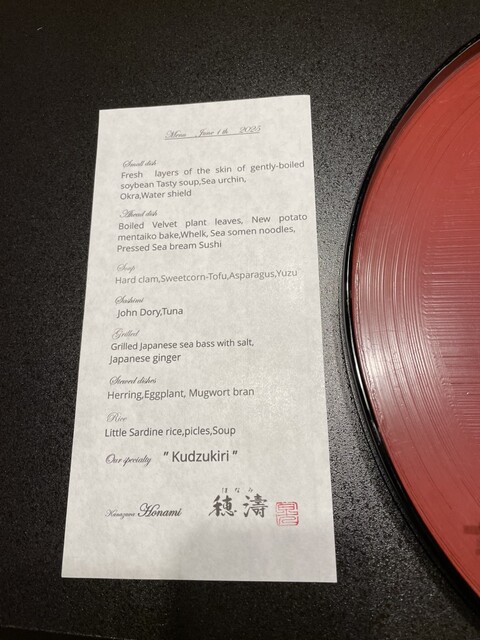 Menu June 1 th 2025
Small dish
Fresh layers of the skin of gently-boiled
soybean Tasty soup,Sea urchin,
Okra,Water shield
Ahead dish
Boiled Velvet plant leaves, New potato
mentaiko bake,Whelk, Sea somen noodles,
Pressed Sea bream Sushi
Soup
Hard clam,Sweetcorn-Tofu,Asparagus,Yuzu
Sashimi
John Dory,Tuna
Grilled
Grilled Japanese sea bass with salt,
Japanese ginger
Stewed dishes
Herring,Eggplant, Mugwort bran
Rice
Little Sardine rice,picles,Soup
Our specialty " Kudzukiri "
ほなみ
Kanazawa Honami 穂濤